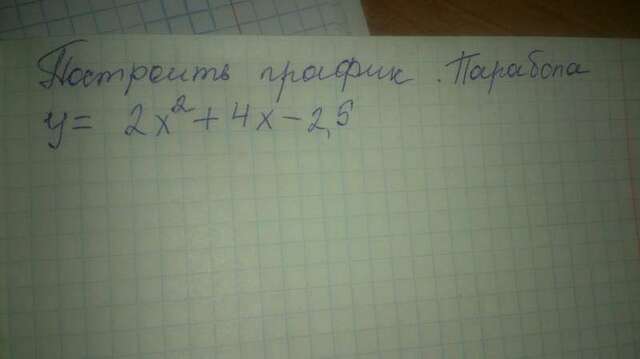 Построить график. Парабола
y= 2x²+4x-2,5